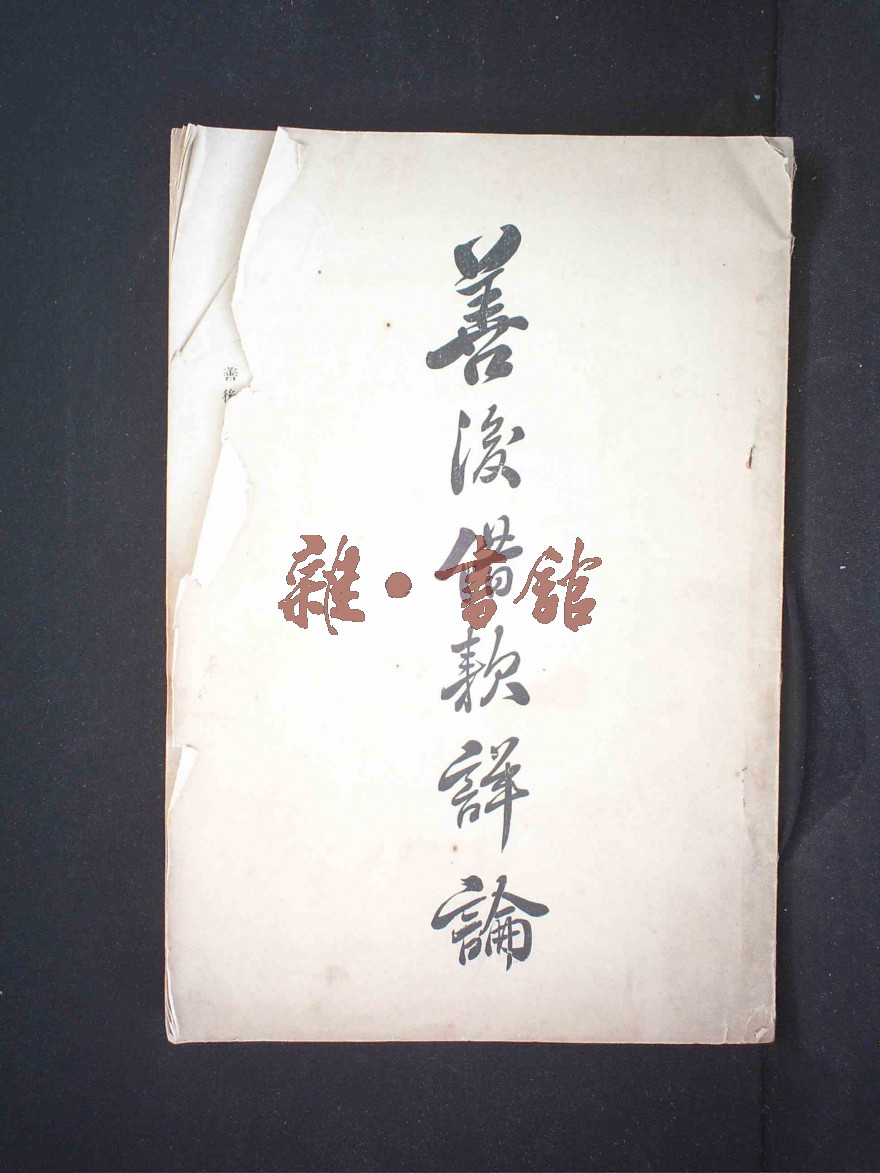 善後借款詳論
善後
雜·書館